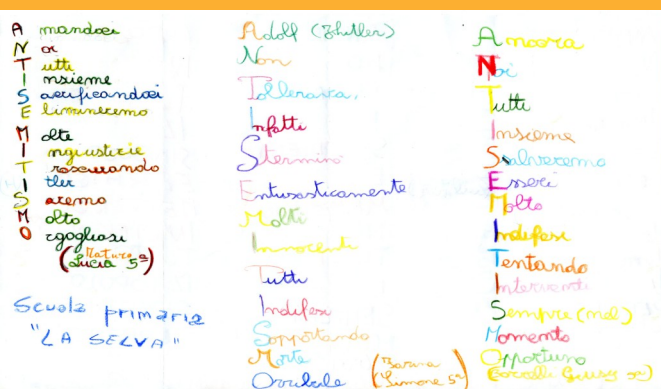 Amandoci
Noi
Tutti
Insieme
Sacrificandoci
Elimineremo
Molte
Ingiustizie
Trascurando
Itler
Saremo
Molto
Orgogliosi
(Maturo
Lucia 5ª)
Scuola primaria
"LA SELVA"
Adolf (Ihitler)
Non
Tollerava,
Infatti
Sterminò
Entusiasticamente
Molti
Innocenti
Tutti
Indifesi
Sopportando
Morte
Orribile
(
Simone 5ª)
Ancora
Noi
Tutti
Insieme
Salveremo
Esseri
Molto
Indifesi
Tentando
Interventi
Sempre (nel)
Momento
Opportuno
Giusy